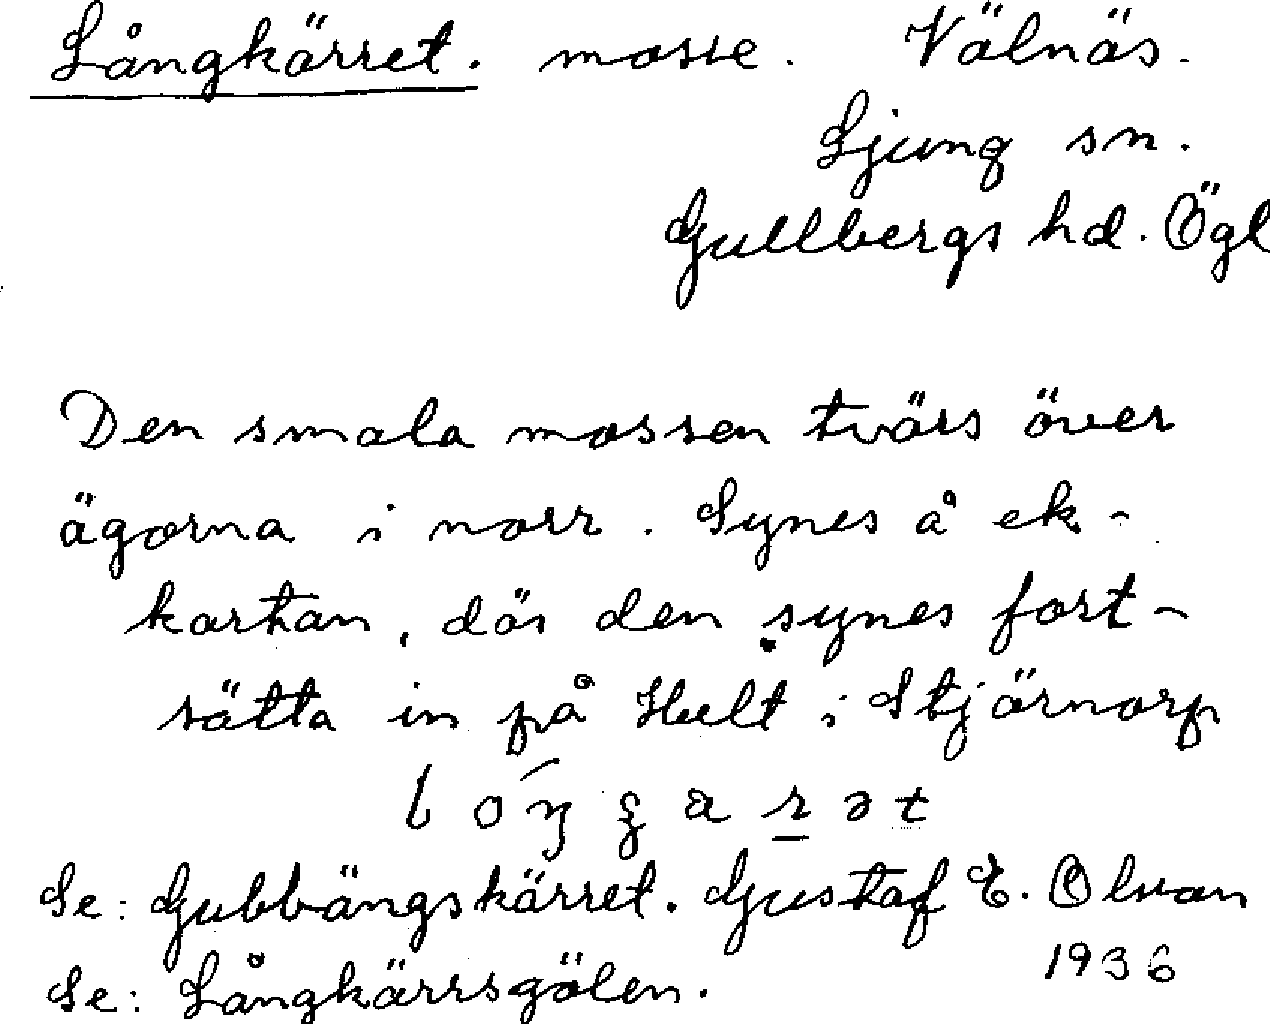 Långkärret. mosse. Välnäs.
Ljung sn.
Gullbergs hd. Ögl
Den smala mossen tvärs över
ägorna i norr. Synes å ek-
kartan, där den synes fort-
sätta in på Hult i Stjärnorp
Se: Gubbängskärret. Gustaf E. Olson
1936
Se: Långkärrsgölen.